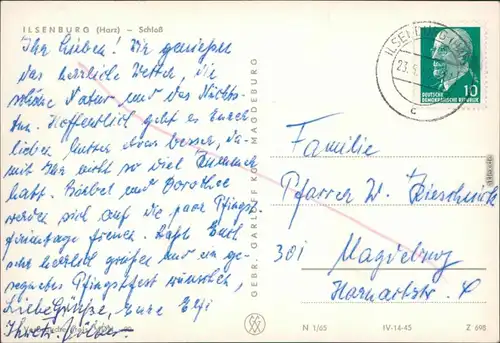 ILSENBURG (Harz) – Schloß
Ihr Lieben! Wir genießen
das herrliche Wetter, die
schöne Natur und das Nichts-
tun. Hoffentlich geht es Eurer
lieben Mutter etwas besser, da-
mit Ihr nicht so viel Kummer
habt. Bärbel und Dorothee
werden sich auf die paar Pfingst-
freientage freuen. Laßt Euch
sehr herzlich grüßen und ein ge-
segnetes Pfingstfest wünschen,
Liebe Grüße, Eure Elfi
GEBR. GARLOFF KG. MAGDEBURG
ILSENBURG
23.
c
10
DEUTSCHE
DEMOKRATISCHE REPUBLIK
Familie
Pfarrer W.
301 Magdeburg
Harnackstr.
N 1/65 IV-14-45 Z 698